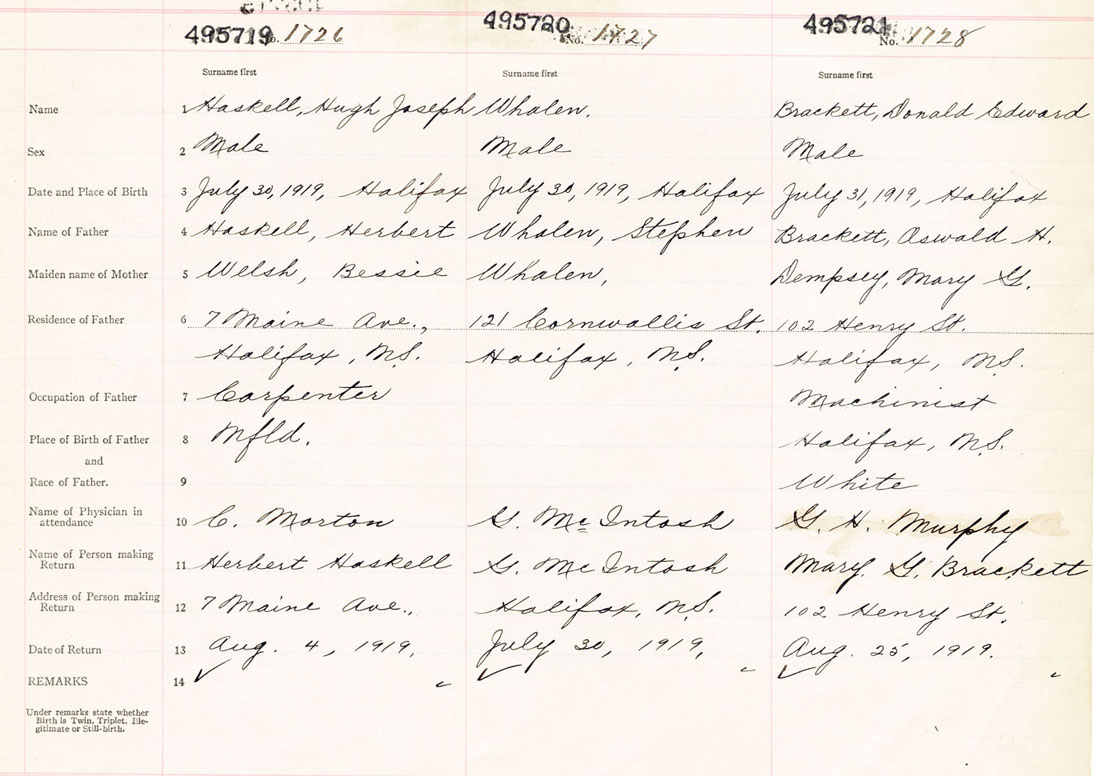 495719 No. 1726 495720 No. 1727 495721 No. 1728
Surname first Surname first Surname first
Name 1 Haskell, Hugh Joseph Whalen. Brackett, Donald Edward
Sex 2 Male Male Male
Date and Place of Birth 3 July 30, 1919, Halifax July 30, 1919, Halifax July 31, 1919, Halifax
Name of Father 4 Haskell, Herbert Whalen, Stephen Brackett, Oswald H.
Maiden name of Mother 5 Welsh, Bessie Whalen, Dempsey, Mary G.
Residence of Father 6 7 Maine Ave., 121 Cornwallis St. 102 Henry St.
Halifax, N.S. Halifax, N.S. Halifax, N.S.
Occupation of Father 7 Carpenter Machinist
Place of Birth of Father 8 Nfld. Halifax, N.S.
and
Race of Father. 9 White
Name of Physician in
attendance 10 C. Morton G. McIntosh G. H. Murphy
Name of Person making
Return 11 Herbert Haskell G. McIntosh Mary. G. Brackett
Address of Person making
Return 12 7 Maine Ave., Halifax, N.S. 102 Henry St.
Date of Return 13 Aug. 4, 1919. July 30, 1919, Aug. 25, 1919.
REMARKS 14
Under remarks state whether
Birth is Twin, Triplet, Ille-
gitimate or Still-birth.